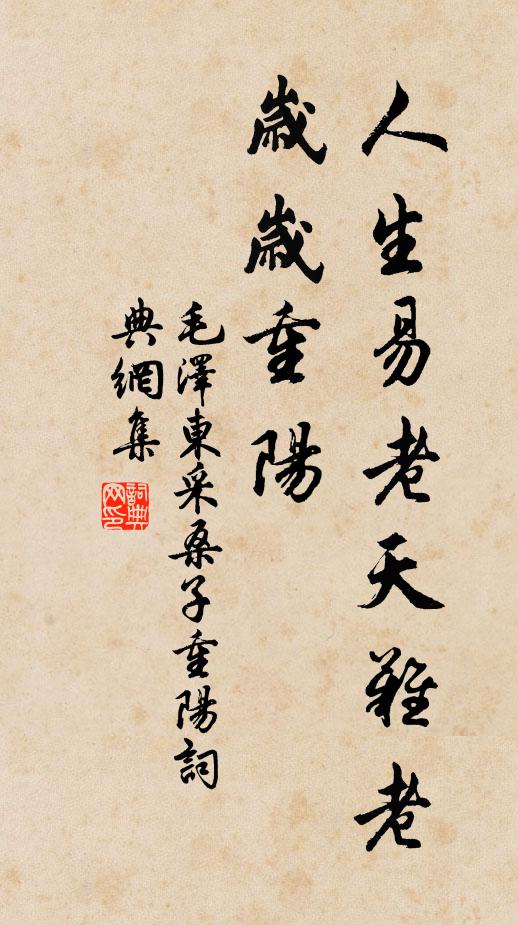 人生易老天難老
歲歲重陽
毛澤東采桑子重陽詞
典網集
詞典
网印